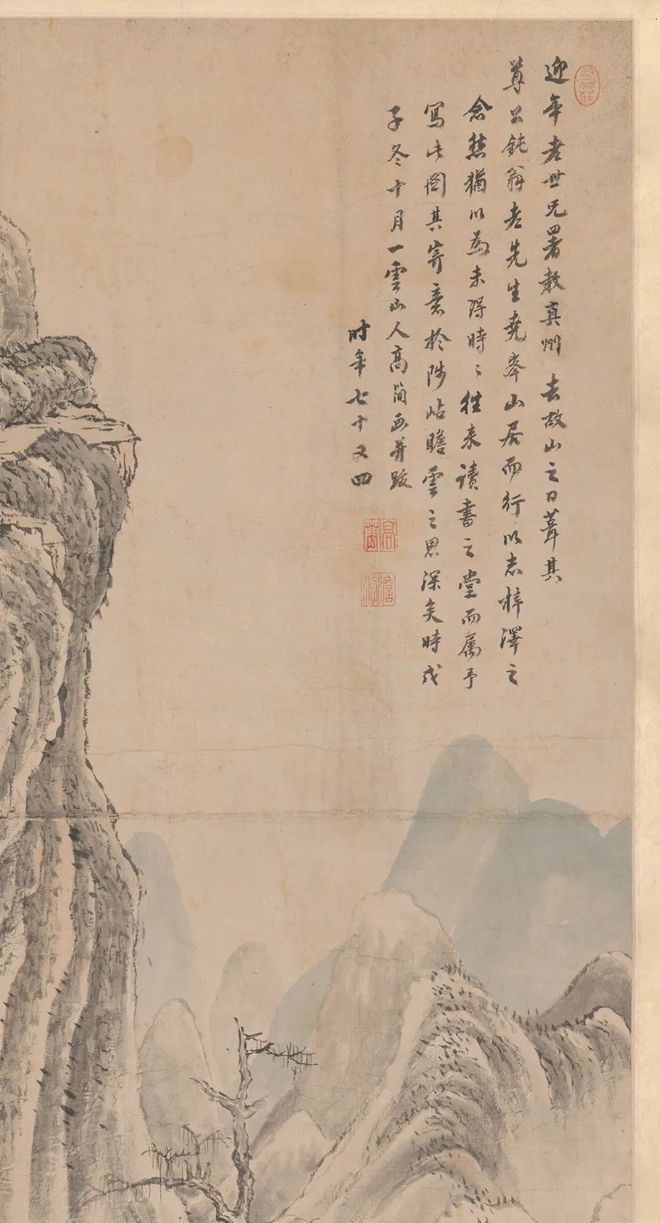 迎年老世兄署教真州去故山之日葺其
尊公鈍翁老先生堯峯山居而行以志梓澤之
念然猶以為未得時〻往来讀書之堂而属予
寫此圖其寄意於陟岵瞻雲之思深矣時戊
子冬十月一雲山人高簡画并跋
时年七十又四